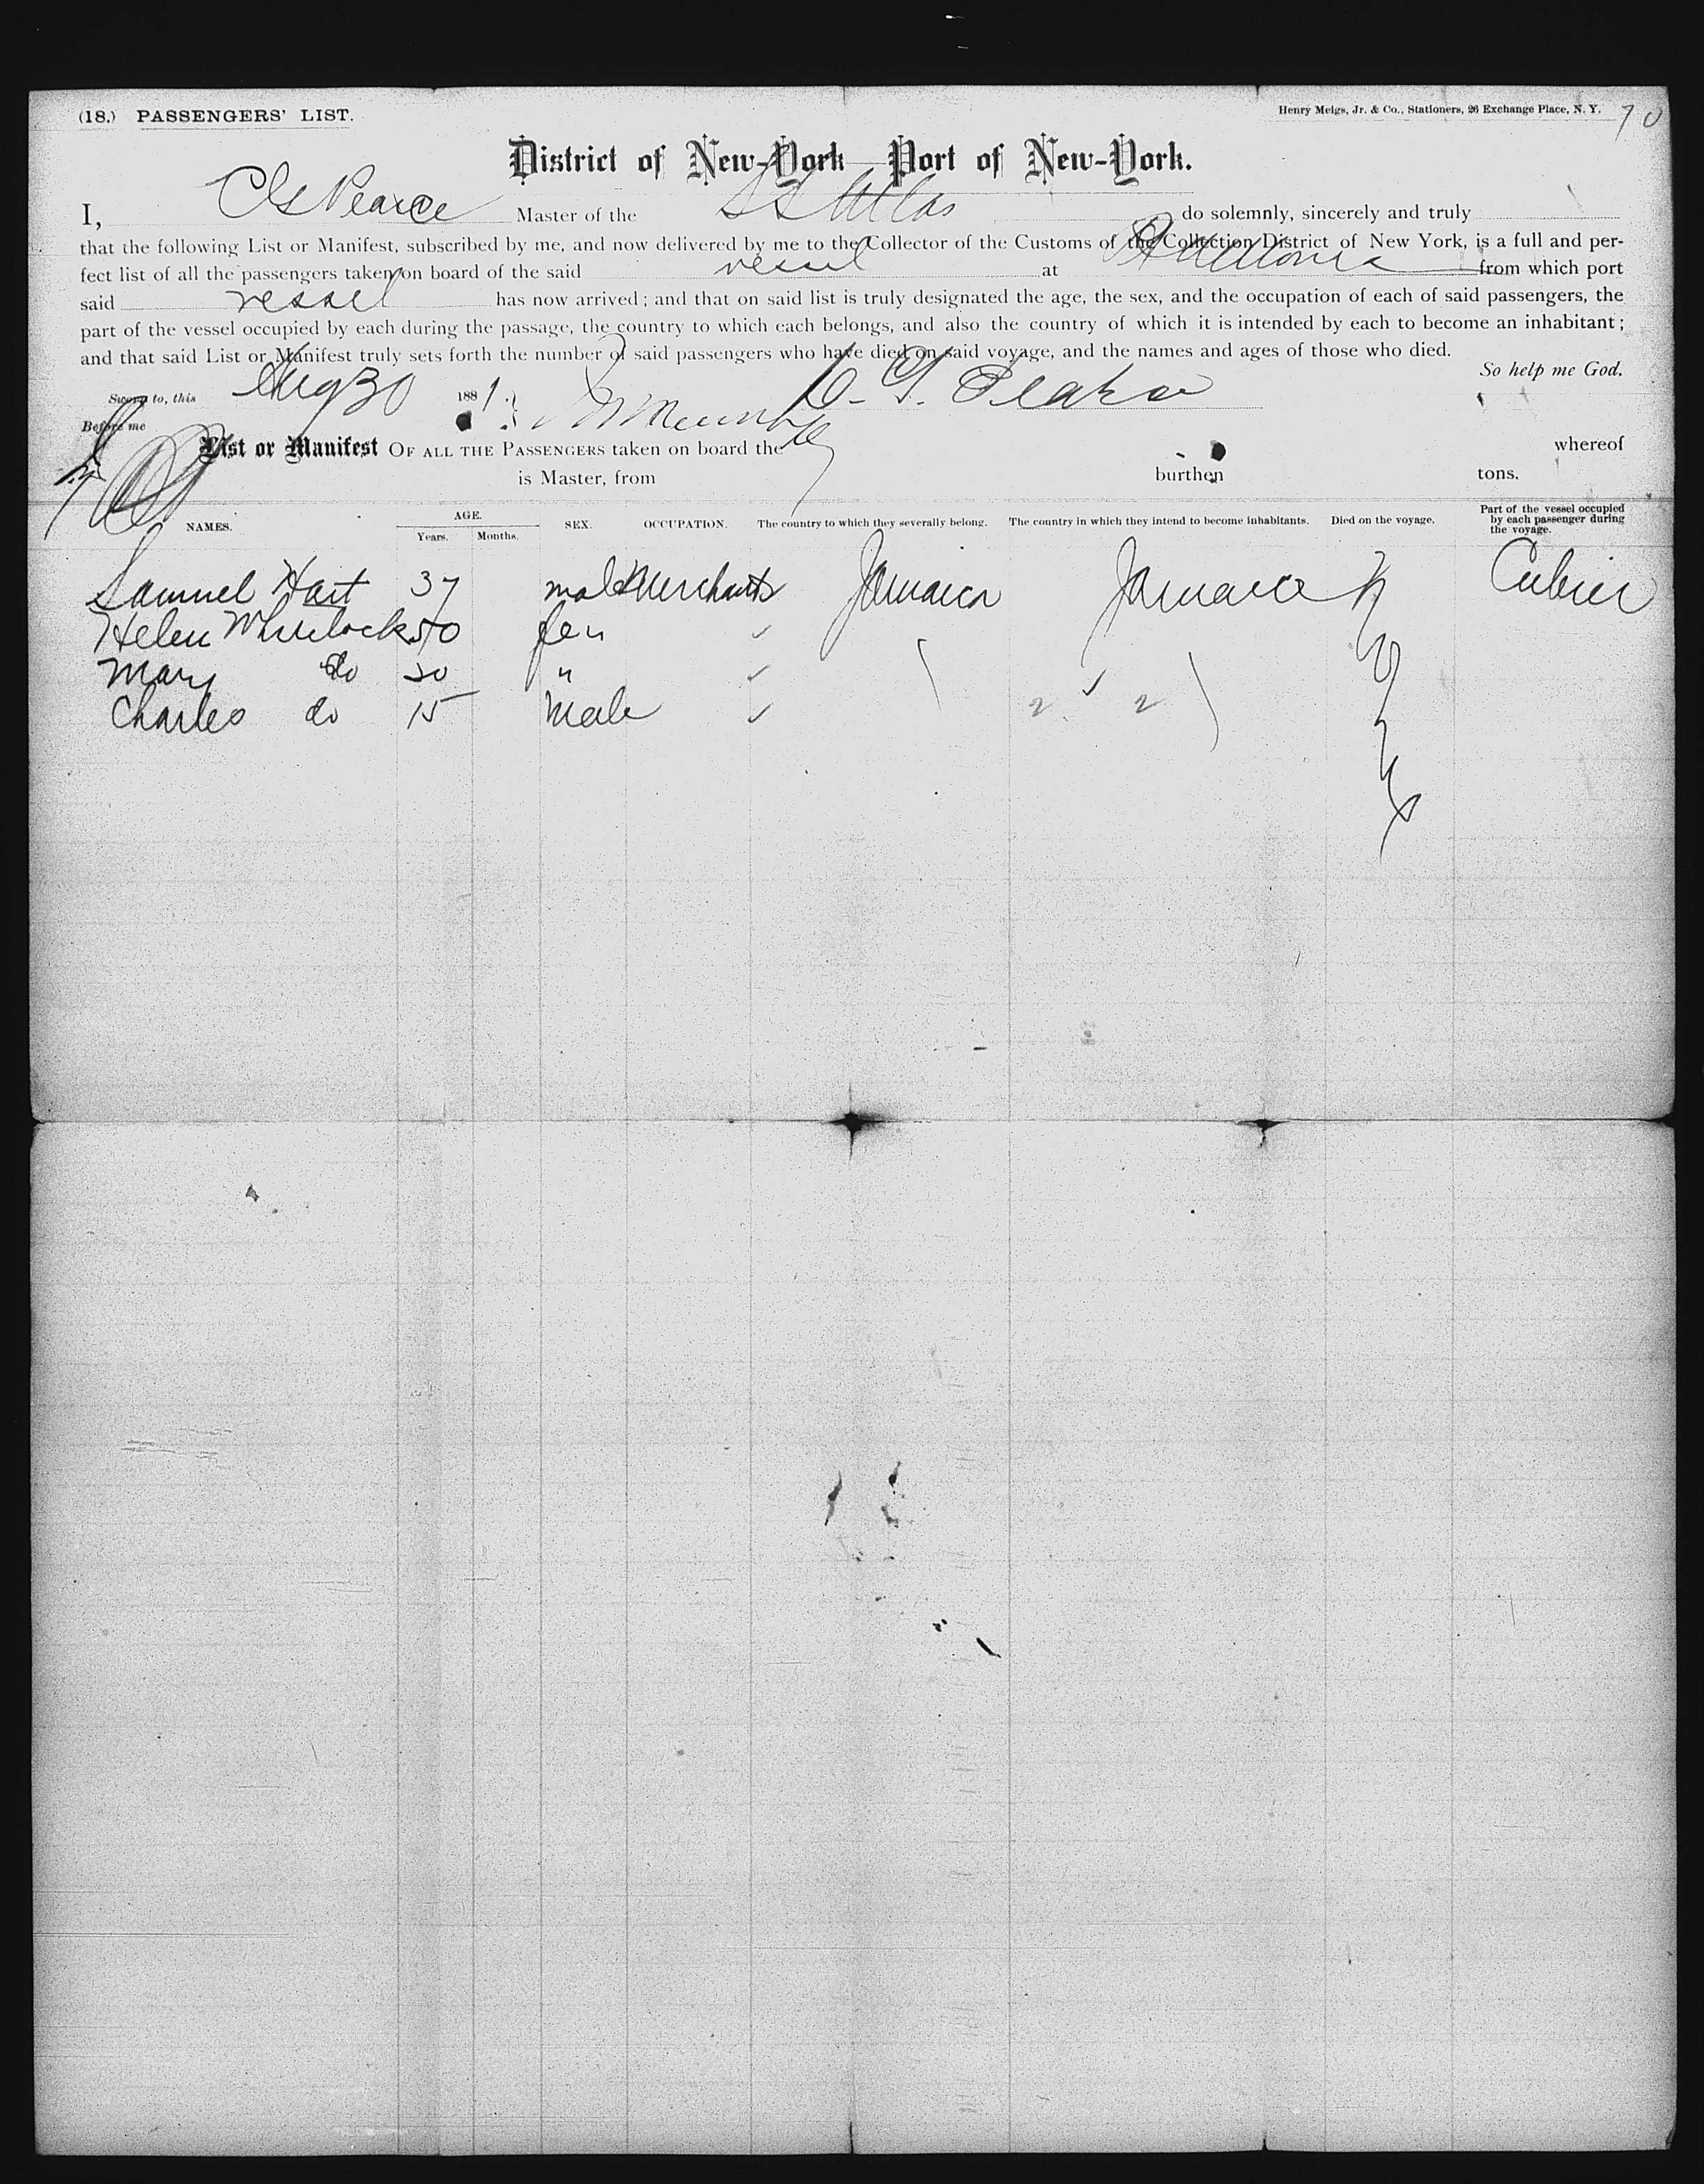 (18.) PASSENGERS' LIST.
Henry Meigs, Jr. & Co., Stationers, 26 Exchange Place, N. Y.
70
District of New-York—Port of New-York.
I, C G Pearce Master of the SS Atlas do solemnly, sincerely and truly
that the following List or Manifest, subscribed by me, and now delivered by me to the Collector of the Customs of the Collection District of New York, is a full and per-
fect list of all the passengers taken on board of the said vessel at from which port
said vessel has now arrived; and that on said list is truly designated the age, the sex, and the occupation of each of said passengers, the
part of the vessel occupied by each during the passage, the country to which each belongs, and also the country of which it is intended by each to become an inhabitant;
and that said List or Manifest truly sets forth the number of said passengers who have died on said voyage, and the names and ages of those who died.
So help me God.
Sworn to, this Aug 30 1881
Before me
List or Manifest OF ALL THE PASSENGERS taken on board the whereof
is Master, from burthen tons.
NAMES. AGE. Years. Months. SEX. OCCUPATION. The country to which they severally belong. The country in which they intend to become inhabitants. Died on the voyage. Part of the vessel occupied by each passenger during the voyage.
Samuel Hart 37 male Merchants Jamaica Jamaica
Helen Wheelock 50 fem
Mary do 20 "
Charles do 15 male